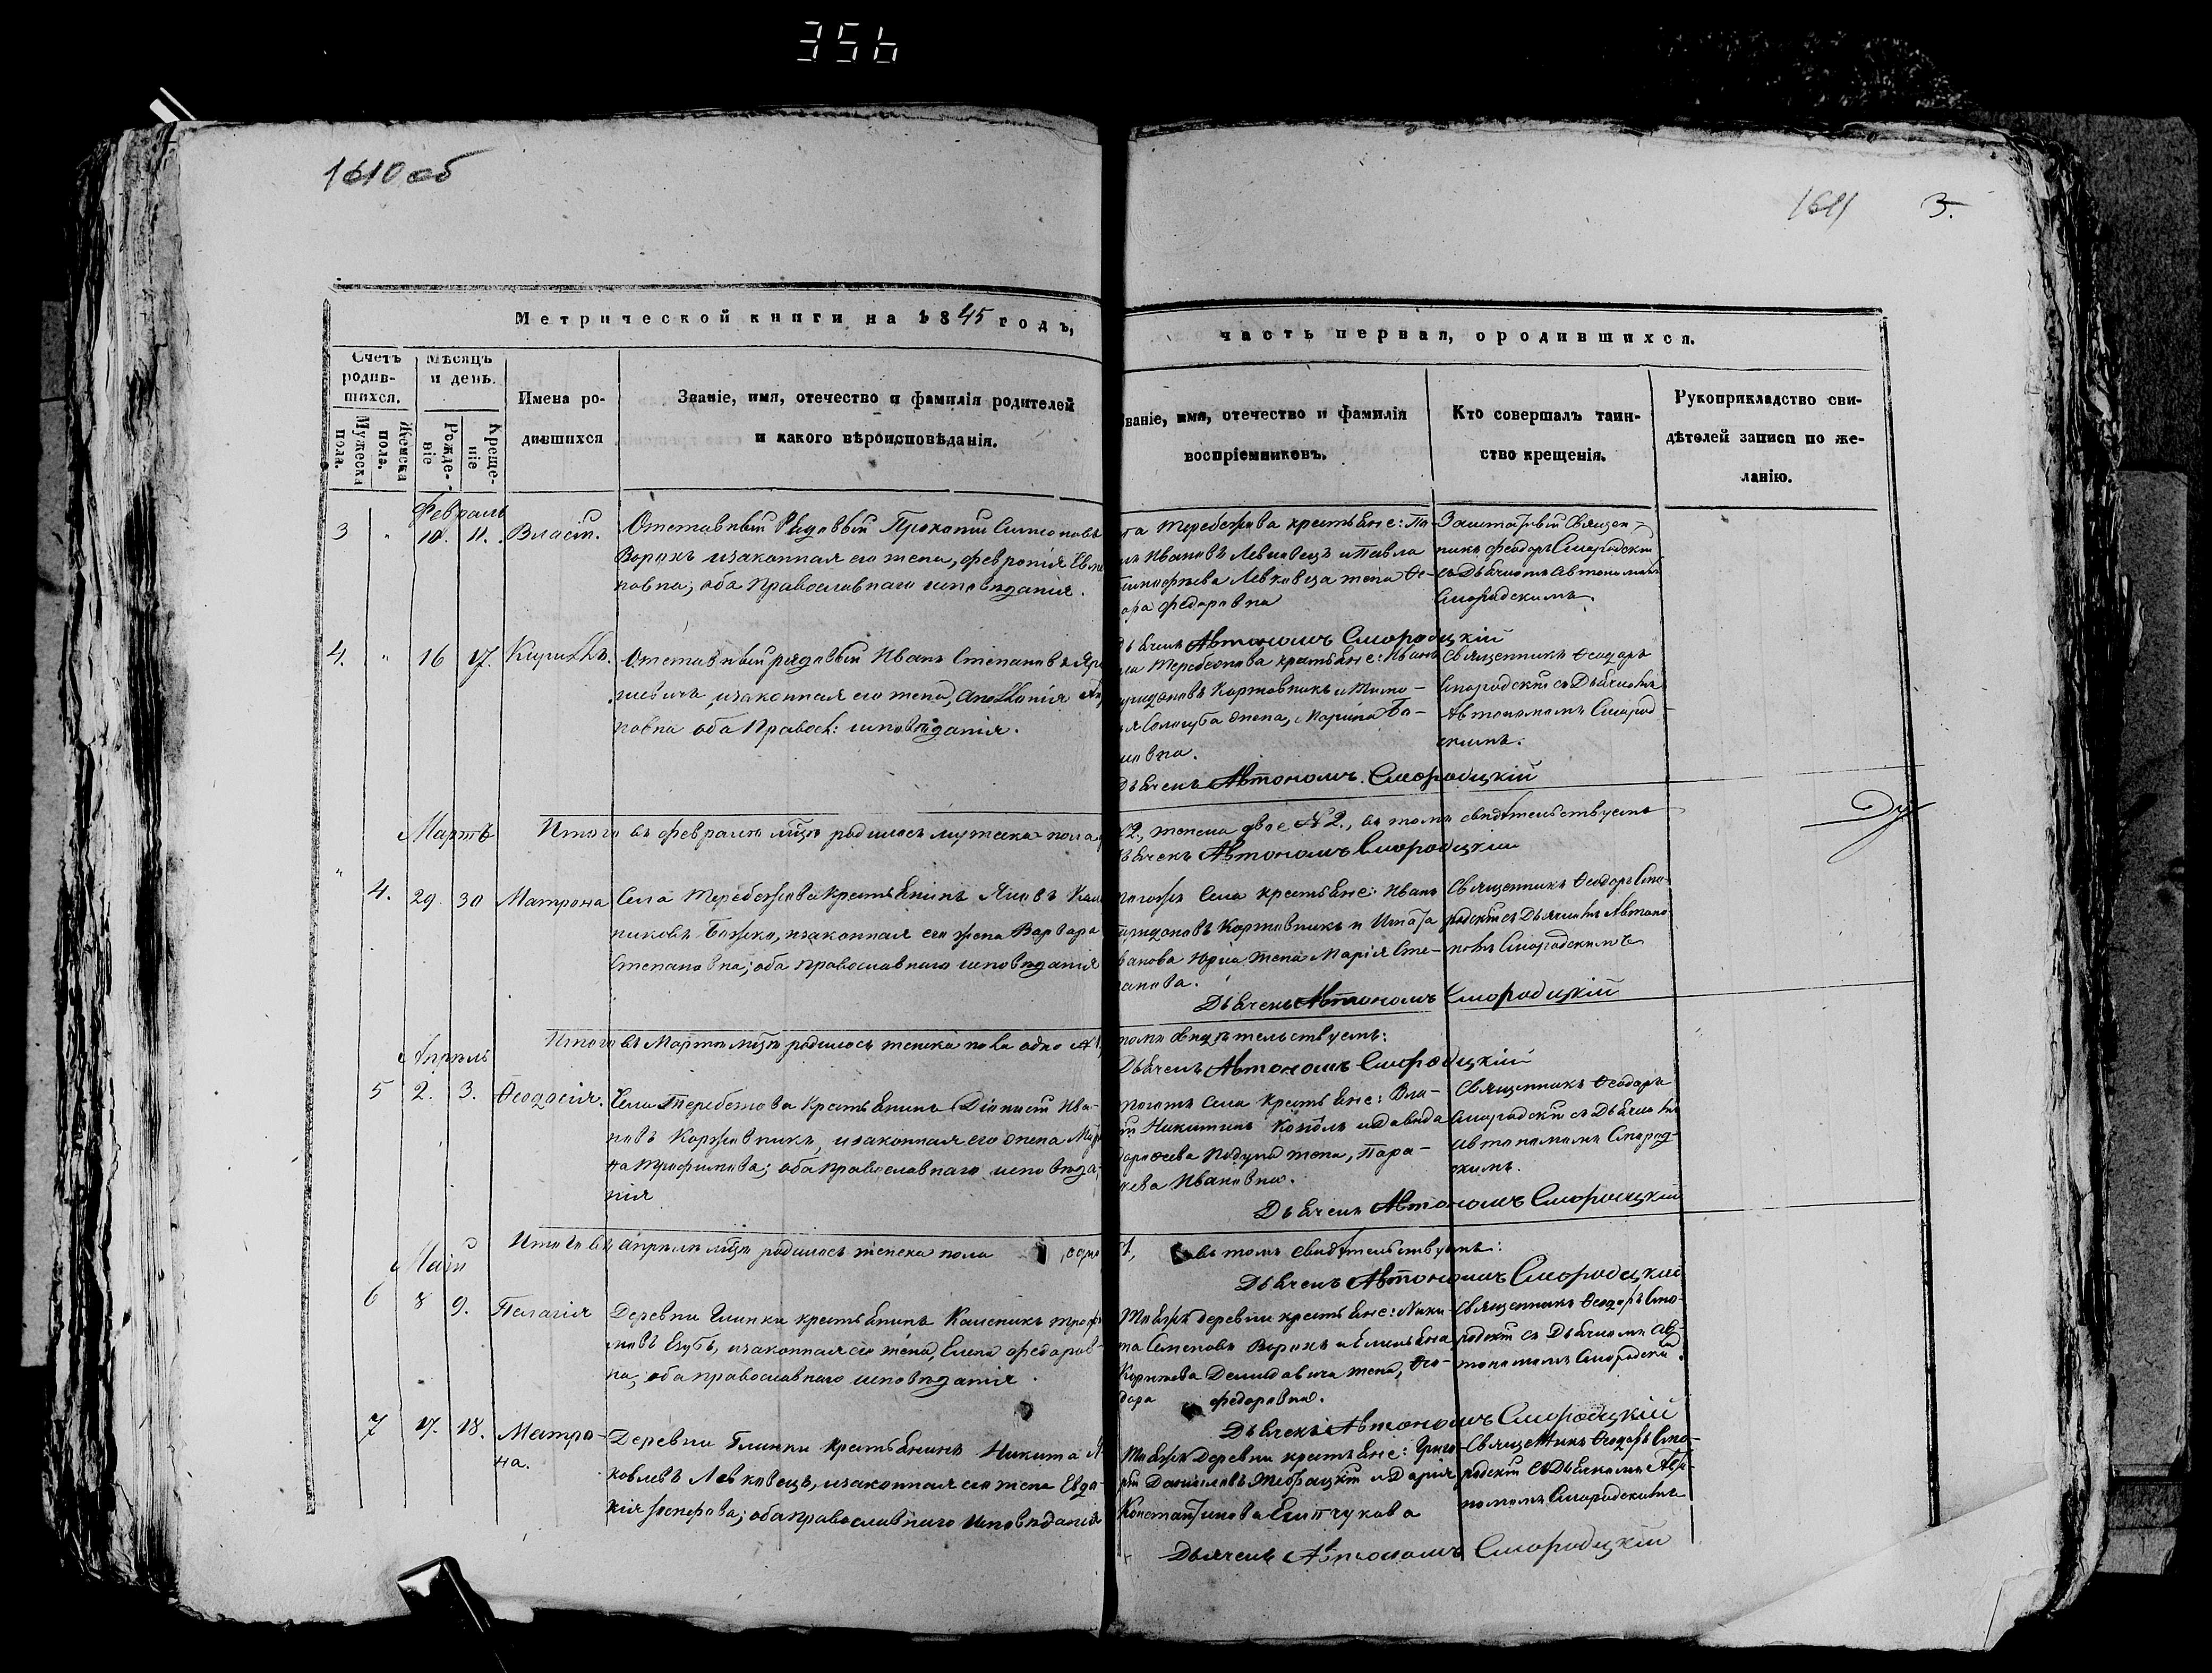 356
1610 об
1611 3.
Метрической книги на 1845 годъ,
часть первая, о родившихся.
Счетъ родив-
шихся.
Мужеска пола.
Женска пола.
Мѣсяцъ и день.
Рожде-
ніе
Креще-
ніе
Имена ро-
дившихся
Званіе, имя, отчество и фамилія родителей
и какого вѣроисповѣданія.
Званіе, имя, отечество и фамилія
воспріемниковъ.
Кто совершалъ таин-
ство крещенія.
Рукоприкладство сви-
дѣтелей записи по же-
ланію.
Февраль
3 " 10. 11. Власій.
Отставный Рядовый Прокопій Симоновъ
Воронъ изаконная его жена, Февронія
новна; оба Православнаго исповѣданія.
Теребежова крестьяне:
Ивановъ Левковецъ и Павла
Тимофѣева Левковеца жена Ѳе-
Федоровна
Заштатный Священ-
никъ Феодоръ Смородскій
съ Дьячкомъ Автономомъ
Смородскимъ.
Дьячекъ Автономъ Смородскій
4. " 16 17. Кириллъ.
Отставный рядовый Иванъ Степановъ
изаконная его жена, Аполлонія
новна оба Правосл: исповѣданія.
Теребежова крестьяне: Иванъ
Спиридоновъ Коржовникъ и
Сологуба жена, Марина
Священникъ Ѳеодоръ
Смородскій съ Дьячкомъ
Автономомъ Смород-
скимъ.
Дьячекъ Автономъ Смородскій
Итого въ февралѣ мѣцѣ родилось мужеска пола
2., женска двое № 2., въ томъ свидѣтельствуетъ
Дьячекъ Автономъ Смородскій
Мартъ
" 4. 29. 30 Матрона
Села Теребежова крестьянинъ Яковъ
никовъ Божко, изаконная его жена Варвара
Степановна; оба православнаго исповѣданія
тогожъ села крестьяне: Иванъ
Спиридоновъ Коржовникъ и Игната
Иванова Юрка жена Марія Сте-
панова.
Священникъ Ѳеодоръ Смо-
родскій съ Дьячкомъ Автоно-
момъ Смородскимъ
Дьячекъ Автономъ Смородскій
Итого въ Мартѣ мѣцѣ родилось женска пола одно № 1,
томъ свидѣтельствуетъ:
Дьячекъ Автономъ Смородскій
Апрѣль
5 2. 3. Ѳеодосія.
Села Теребежова Крестьянинъ Діонисій Ива-
новъ Коржовникъ, изаконная его жена
на Трофимова; оба православнаго исповѣда-
нія
тогожъ села Крестьяне: Вла-
Никитинъ Козолъ и Давида
жена, Пара-
скева Ивановна.
Священникъ Ѳеодоръ
Смородскій съ Дьячкомъ
Автономомъ Смород-
скимъ.
Дьячекъ Автономъ Смородскій
Итого въ апрѣлѣ мѣцѣ родилось женска пола одно
1, въ томъ свидѣтельствуетъ:
Дьячекъ Автономъ Смородскій
Май
6 8 9. Пелагія
Деревни Глинки крестьянинъ Каленикъ Трофи-
мовъ изаконная его жена, Елена Федоров-
на; оба православнаго исповѣданія.
Тояжъ деревни крестьяне: Ники-
та Семеновъ Воронъ и Емельяна
Корнѣева Демидавича жена, Ѳео-
дора Федоровна.
Священникъ Ѳеодоръ Смо-
родскій съ Дьячкомъ Ав-
тономомъ Смородским.
Дьячекъ Автономъ Смородскій
7 17. 18. Матро-
на.
Деревни Глинки Крестьянинъ Никита Я-
ковлевъ Левковецъ, изаконная его жена Евдо-
кія оба православнаго исповѣданія
Тояжъ деревни крестьяне: Григо-
рій Даниловъ и Дарія
Константинова
Священникъ Ѳеодоръ Смо-
родскій съ Дьячкомъ Авто-
номомъ Смородскимъ
Дьячекъ Автономъ Смородскій